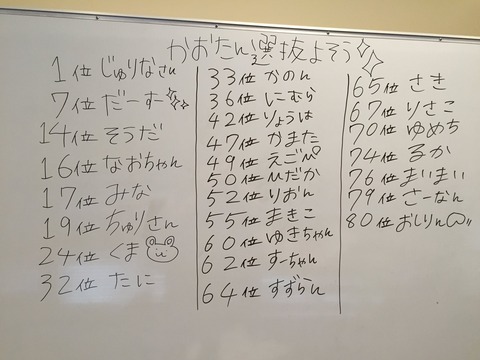 かおたん選抜よそう
1位 じゅりなさん
7位 だーすー
14位 そうだ
16位 なおちゃん
17位 みな
19位 ちゅりさん
24位 くま
32位 たに
33位 かのん
36位 にむら
42位 りょうは
47位 かまた
49位 えごぴ
50位 ひだか
52位 りおん
55位 まきこ
60位 ゆきちゃん
62位 すーちゃん
64位 すずらん
65位 さき
67位 りさこ
70位 ゆめち
74位 るか
76位 まいまい
79位 さーなん
80位 おしりん